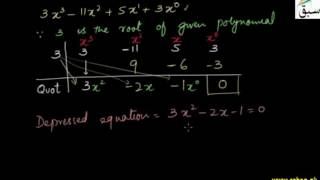 3x³-11x²+5x¹+3x⁰,
∵ 3 is the root of given polynomial
x³ x² x x⁰
3 3 -11 5 3
9 -6 -3
Quot 3x² -2x -1x⁰ 0
Depressed equation = 3x²-2x-1=0
سبق